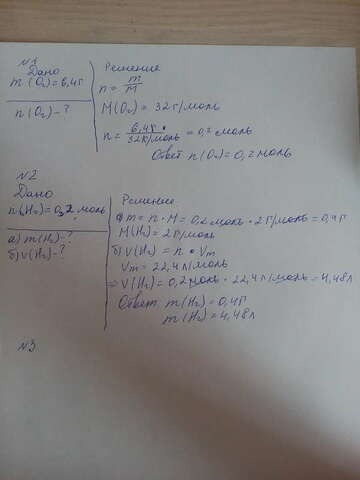 №1
Дано
m(O₂)=6,4г
n(O₂)-?
Решение
n = m/M
M(O₂) = 32 г/моль
n = 6,4г/32г/моль = 0,2 моль
Ответ n(O₂)=0,2 моль
№2
Дано
n(H₂)=0,2 моль
а) m(H₂)-?
б) v(H₂)-?
Решение
а) m = n · M = 0,2 моль · 2 г/моль = 0,4г
M(H₂) = 2 г/моль
б) V(H₂) = n · Vm
Vm = 22,4 л/моль
⇒ V(H₂) = 0,2 моль · 22,4 л/моль = 4,48л
Ответ m(H₂) = 0,4г
m(H₂) = 4,48л
№3